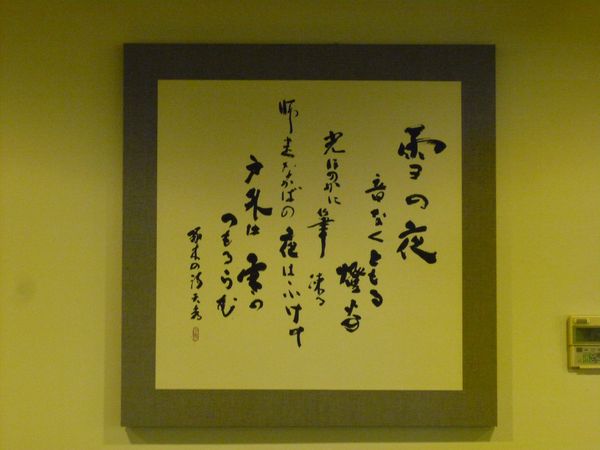 雪の夜
音なくともる
燈
光ほのかに 筆
凍る
師走なかばの 夜はふけて
戸外は 雪の
つもるらむ
啄木の詩